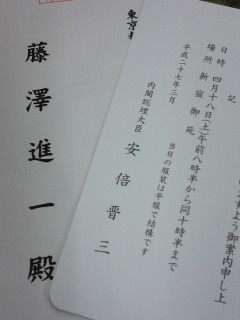 すよう御案内申し上
記
日時 四月十八日(土)午前八時半から同十時半まで
場所 新宿御苑
当日の服装は平服で結構です
平成二十七年三月
内閣総理大臣 安倍晋三
東京
藤澤進一殿